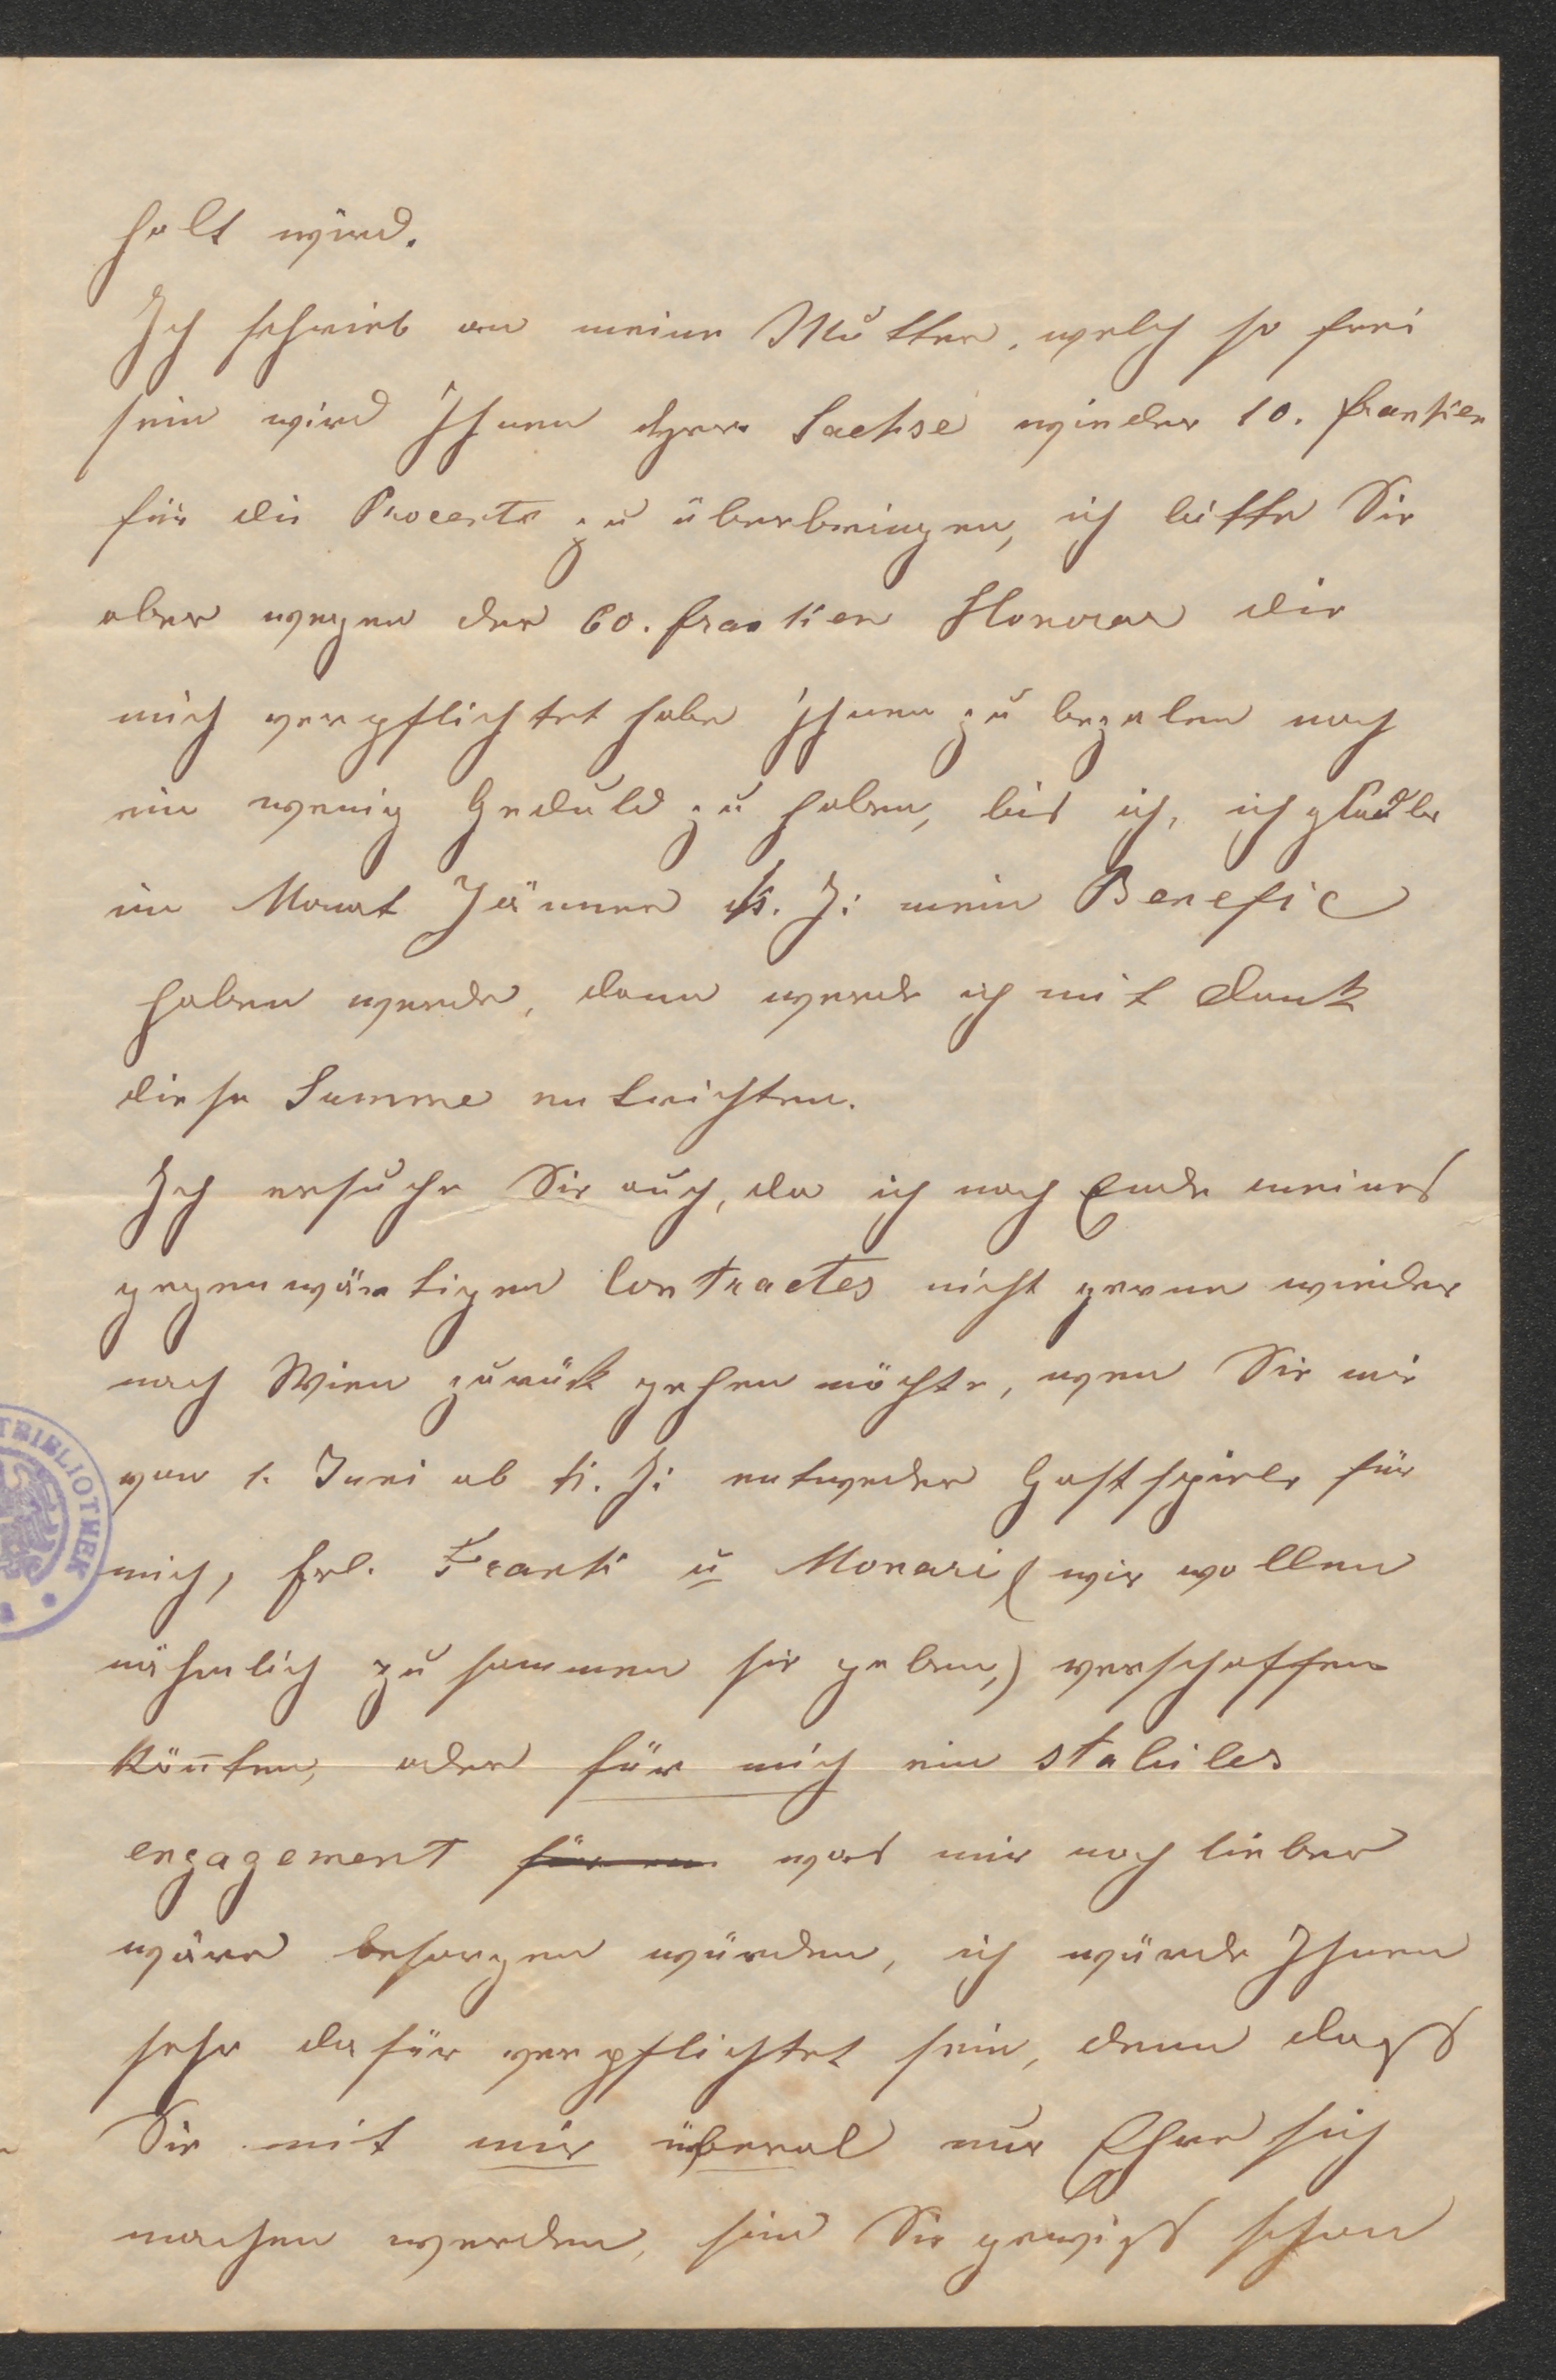 holt wird.
Ich schrieb an meine Mutter, welch so frei
sein wird Ihnen Herr Sachse wieder 10. franken
für die Procente zu überbringen, ich bitte Sie
aber wegen der 60. franken Honorar die
mich verpflichtet habe Ihnen zu bezalen noch
ein wenig Geduld zu haben, bis ich, ich glaube
im Monat Jänner k. J: mein Benefic
haben werde, dann werde ich mit Dank
diese Summe entrichten.
Ich ersuche Sie auch, da ich nach Ende meines
gegenwärtigen Contractes nicht gerne wieder
nach Wien zurück gehen möchte, wen Sie mir
von 1. Juni ab k. J: entweder Gastspiele für
mich, Frl. Frank u Monari (wir wollen
nähmlich zusammen hir geben,) verschaffen
könnten, oder für mich ein stabiles
engagement für was mir noch lieber
wäre besorgen würden, ich würde Ihnen
sehr dafür verpflichtet sein, denn dass
Sie mit mir überal nur Ehre sich
machen werden, sind Sie gewiss schon
TBIBLIOTHEK